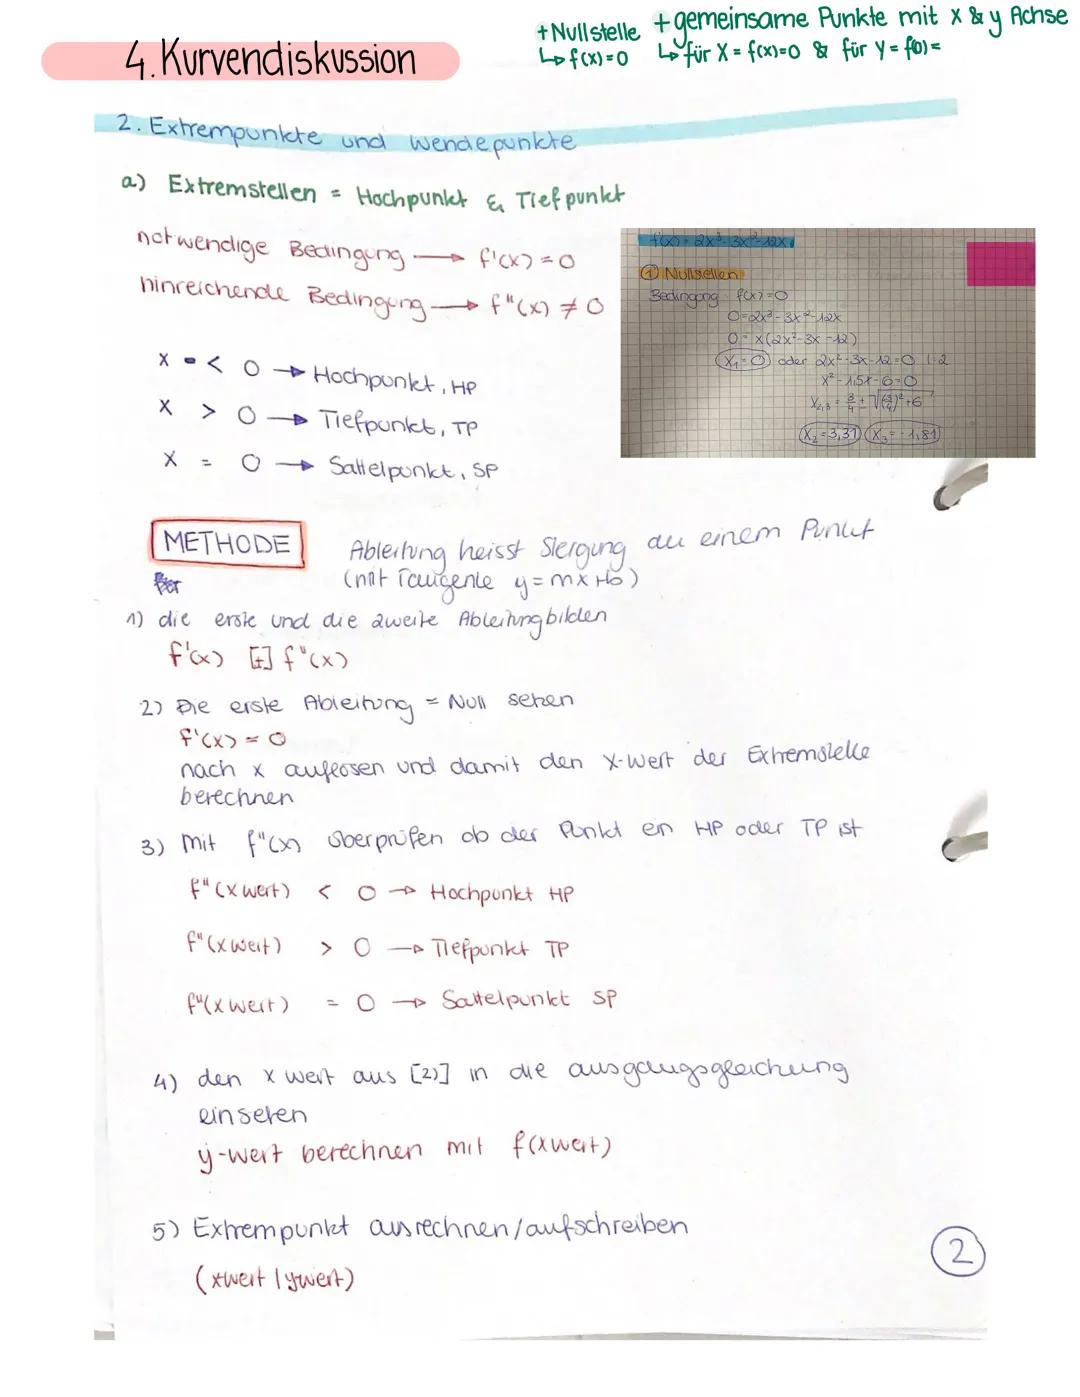 + Nullstelle + gemeinsame Punkte mit x & y Achse
↳ f(x)=0 ↳ für X = f(x)=0 & für y = f(0) =
4. Kurvendiskussion
2. Extrempunkte und wendepunkte
a) Extremstellen = Hochpunkt & Tiefpunkt
notwendige Bedingung → f'(x) = 0
hinreichende Bedingung → f"(x) ≠ 0
x < 0 → Hochpunkt, HP
x > 0 → Tiefpunkt, TP
x = 0 → Sattelpunkt, SP
f(x) = 2x³-3x²-12x
① Nullstellen
Bedingung f(x)=0
0=2x³-3x²-12x
0 = x(2x²-3x-12)
X₁=0 oder 2x²-3x-12=0 |:2
x²-1,5x-6=0
X₂,₃ = 3/4 ± √(3/4)²+6
X₂=3,31 X₃=-1,81
METHODE
Ableitung heisst Steigung an einem Punkt
(mit Tangente y = mx+b)
1) die erste und die zweite Ableitung bilden
f'(x) [+] f"(x)
2) Die erste Ableitung = Null setzen
f'(x) = 0
nach x auflösen und damit den x-Wert der Extremstelle
berechnen
3) Mit f"(x) überprüfen ob der Punkt ein HP oder TP ist
f"(xwert) < 0 → Hochpunkt HP
f"(xwert) > 0 → Tiefpunkt TP
f"(xwert) = 0 → Sattelpunkt SP
4) den x wert aus [2)] in die ausgangsgleichung
einseten
y-wert berechnen mit f(xwert)
5) Extrempunkt ausrechnen/aufschreiben
(xwert | ywert)
2